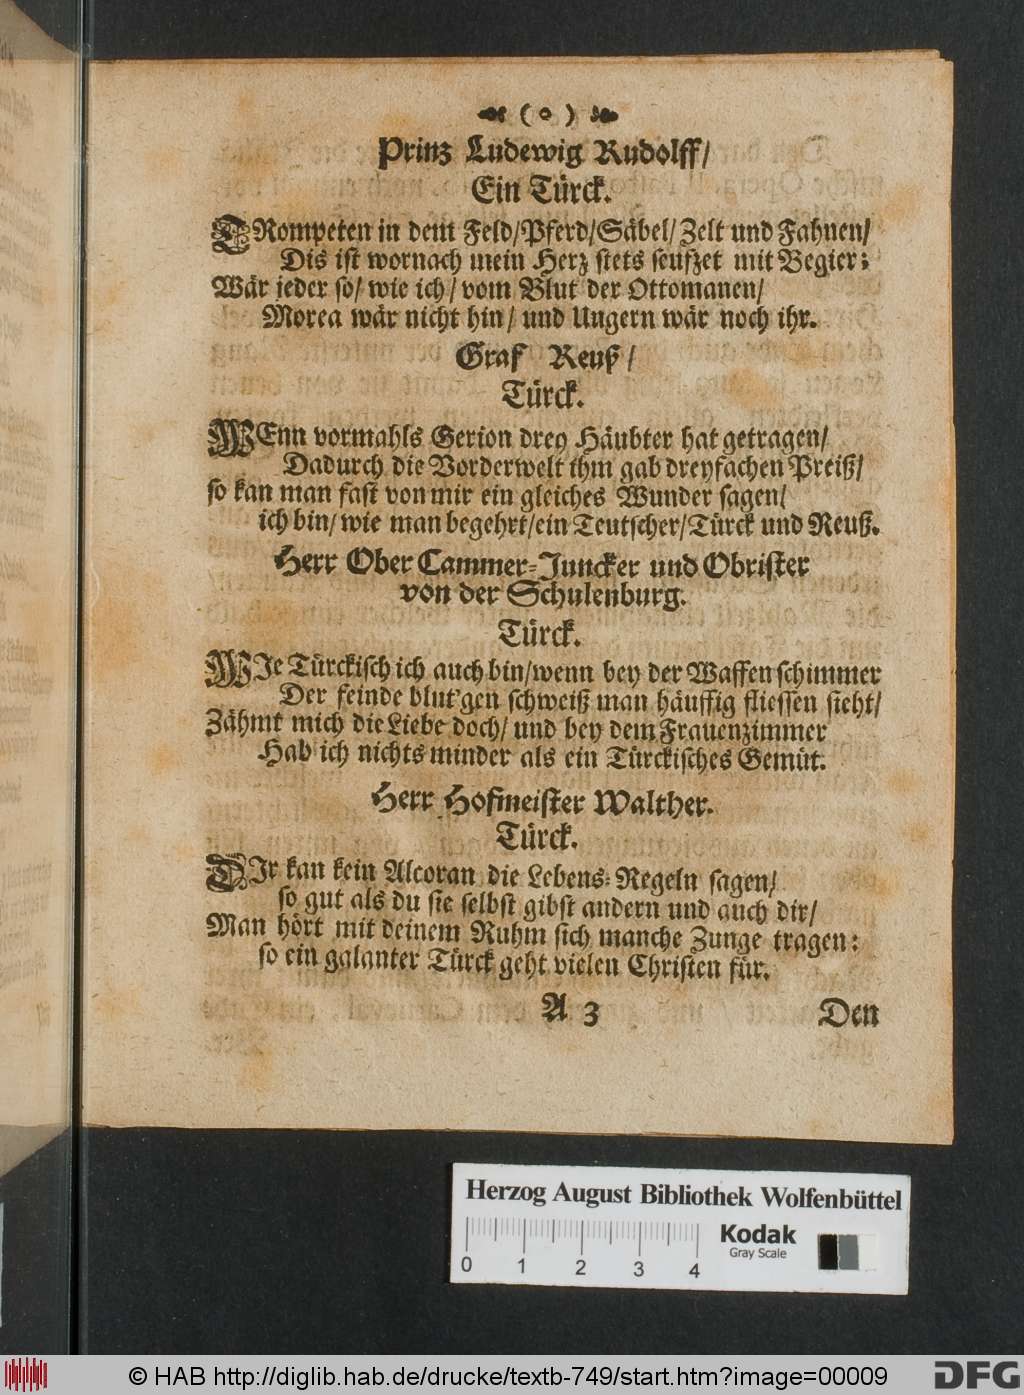 ( o )
Prinz Ludewig Rudolff/
Ein Türck.
TRompeten in dem Feld/Pferd/Säbel/Zelt und Fahnen/
Dis ist wornach mein Herz stets seufzet mit Begier;
Wär jeder so/ wie ich/ vom Blut der Ottomanen/
Morea wär nicht hin/ und Ungern wär noch ihr.
Graf Reuß/
Türck.
WEnn vormahls Gerion drey Häubter hat getragen/
Dadurch die Vorderwelt ihm gab dreyfachen Preiß/
so kan man fast von mir ein gleiches Wunder sagen/
ich bin/ wie man begehrt/ein Teutscher/Türck und Reuß.
Herr Ober Cammer-Juncker und Obrister
von der Schulenburg.
Türck.
WIe Türckisch ich auch bin/wenn bey der Waffen schimmer
Der feinde blut'gen schweiß man häuffig fliessen sieht/
Zähmt mich die Liebe doch/ und bey dem Frauenzimmer
Hab ich nichts minder als ein Türckisches Gemüt.
Herr Hofmeister Walther.
Türck.
DIr kan kein Alcoran die Lebens-Regeln sagen/
so gut als du sie selbst gibst andern und auch dir/
Man hört mit deinem Ruhm sich manche Zunge tragen:
so ein galanter Türck geht vielen Christen für.
A 3 Den
Herzog August Bibliothek Wolfenbüttel
Kodak
Gray Scale
0 1 2 3 4
© HAB http://diglib.hab.de/drucke/textb-749/start.htm?image=00009
DFG